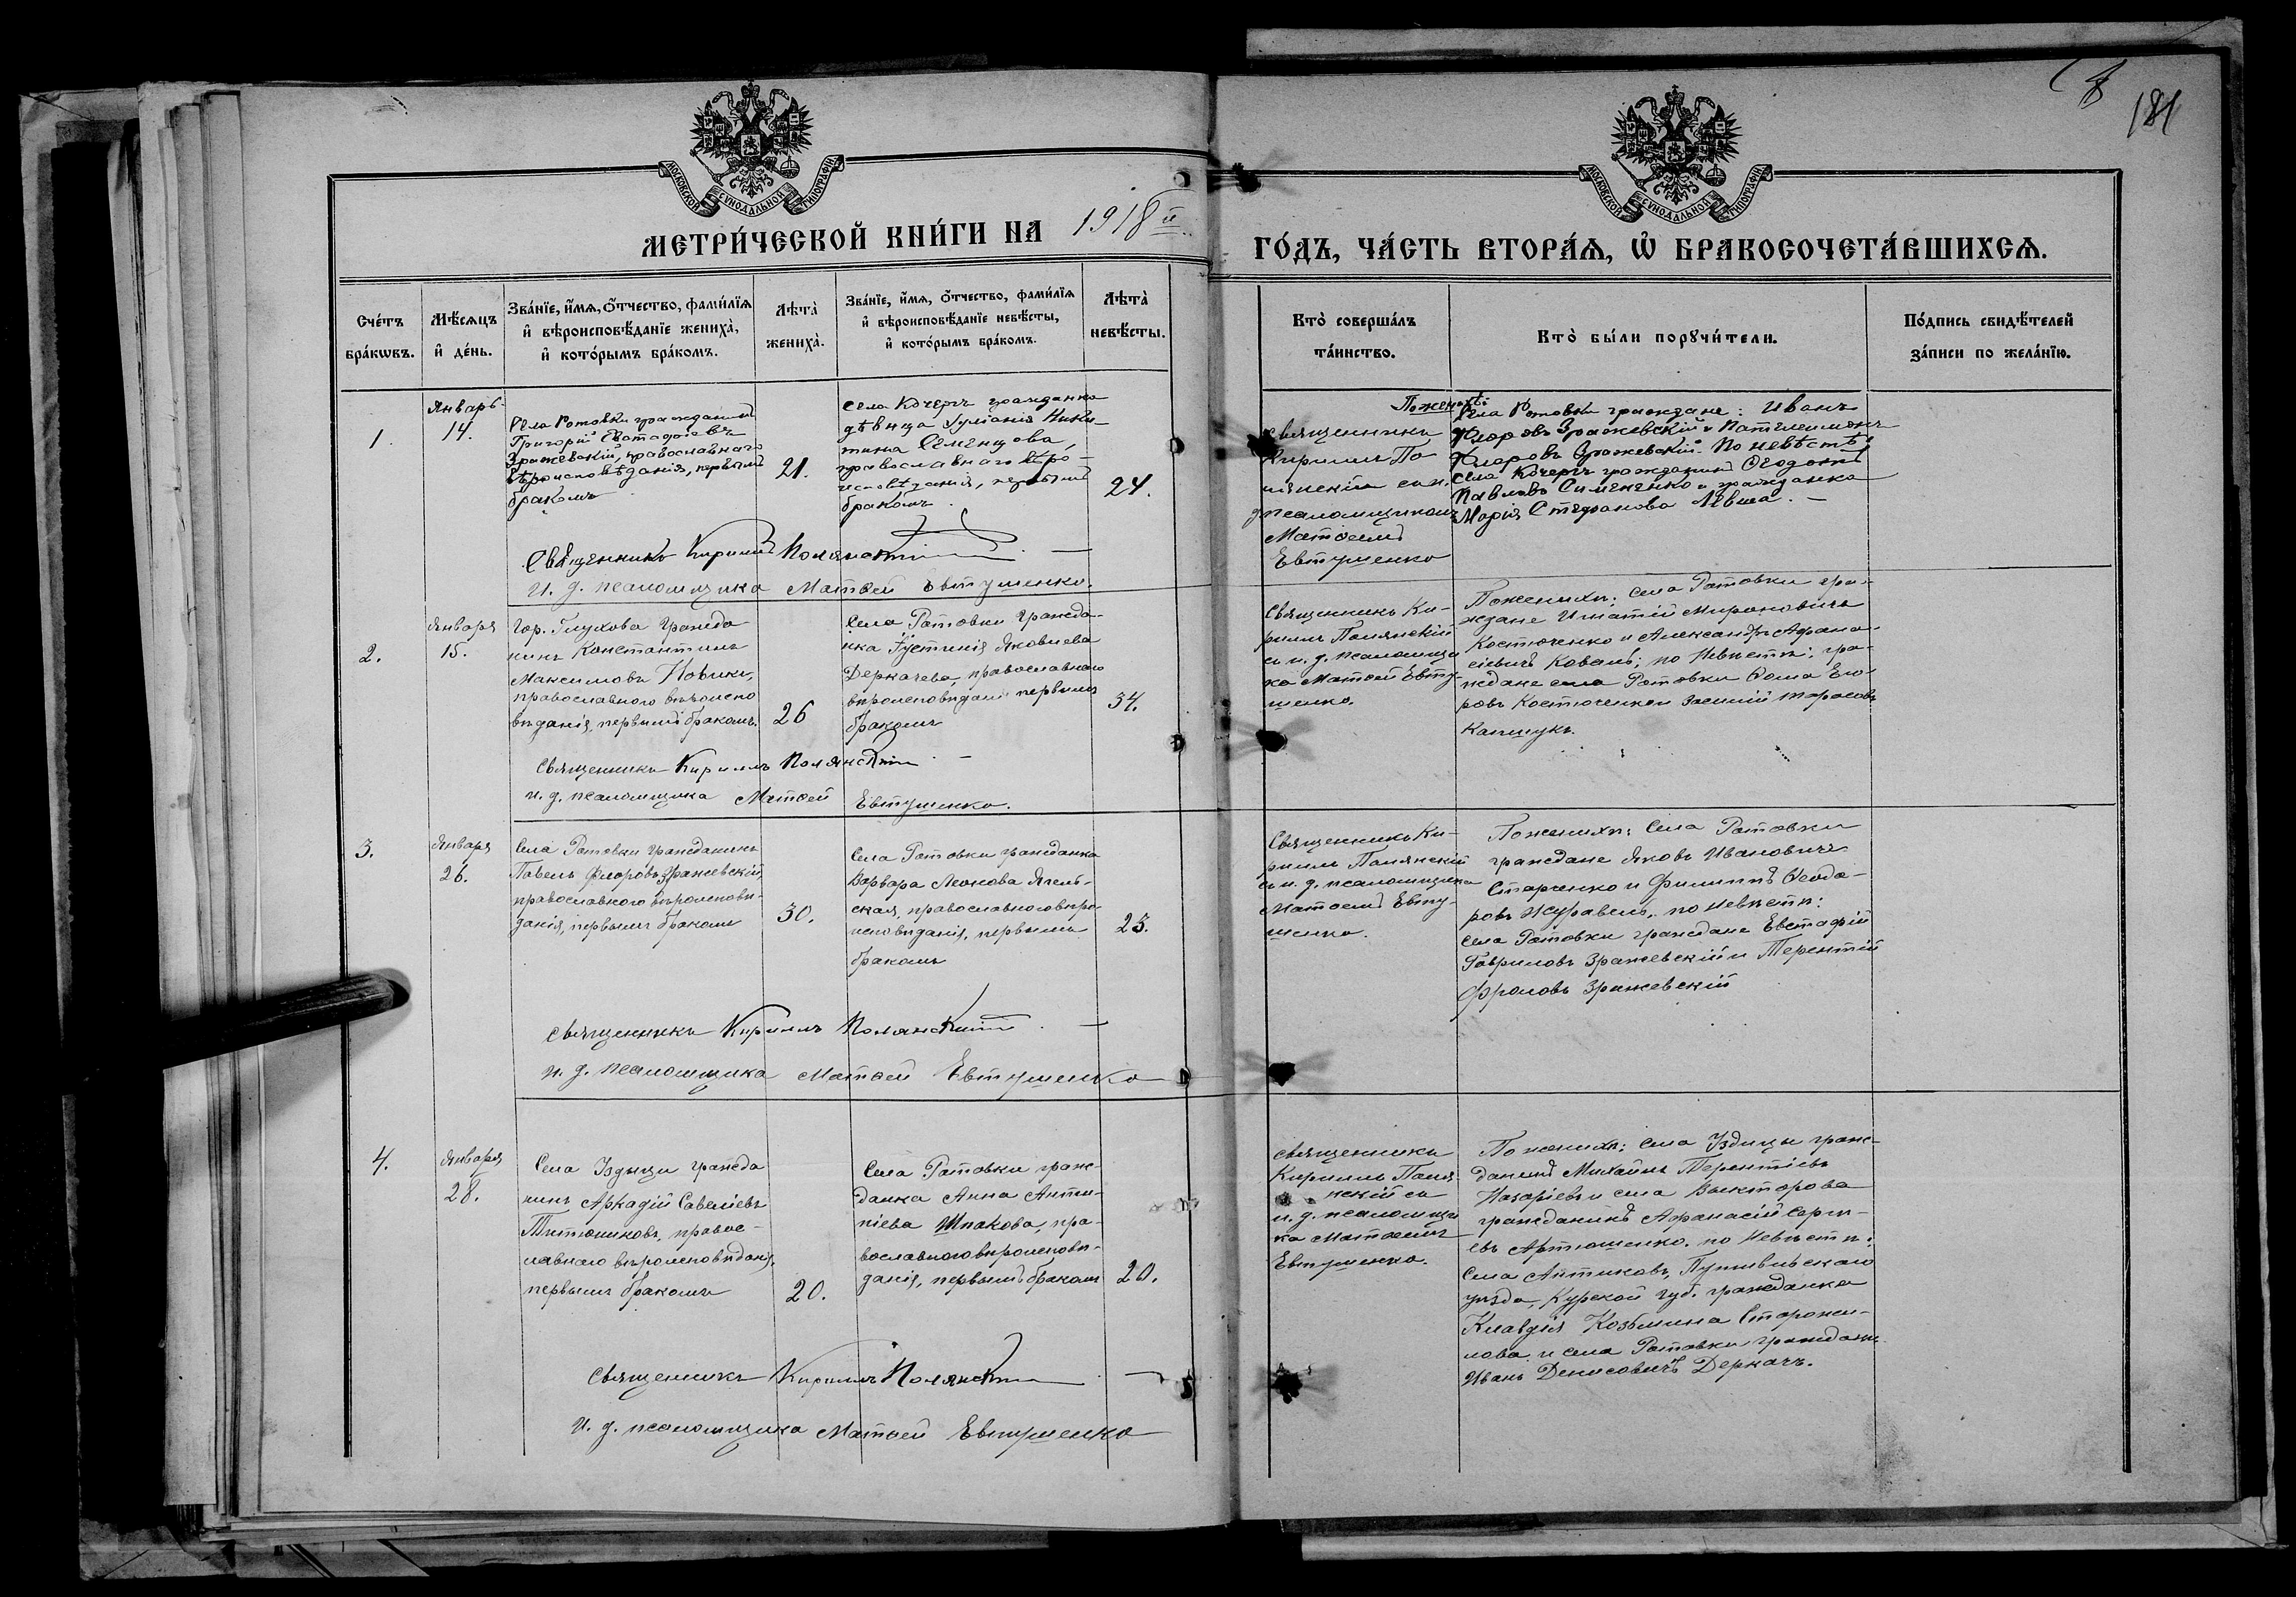 181
МОСКОВСКОЙ СѴНОДАЛЬНОЙ ТИПОГРАФІИ
МОСКОВСКОЙ СѴНОДАЛЬНОЙ ТИПОГРАФІИ
МЕТРИ́ЧЕСКОЙ КНИ́ГИ НА 1918й
ГО́ДЪ, ЧА́СТЬ ВТОРА́Ѧ, Ѽ БРАКОСОЧЕТА́ВШИХСѦ.
Сче́тъ бра́кѡвъ.
Мѣ́сѧцъ и҆ де́нь.
Зва́нїе, и҆́мѧ, ѻ҆́тчество, фами́лїѧ и҆ вѣроисповѣ́данїе жениха̀, и҆ кото́рымъ бра́комъ.
Лѣта̀ жениха̀.
Зва́нїе, и҆́мѧ, ѻ҆́тчество, фами́лїѧ и҆ вѣроисповѣ́данїе невѣ́сты, и҆ кото́рымъ бра́комъ.
Лѣта̀ невѣ́сты.
Кто̀ соверша́лъ та́инство.
Кто̀ бы́ли порꙋчи́тели.
По́дпись свидѣ́телей за́писи по жела́нїю.
1.
Январь
14.
Села Ротовки гражданинъ
Григорій Евстафіевъ
Зражевскій, православнаго
вѣроисповѣданія, первымъ
бракомъ
21.
села Кочергъ гражданка
дѣвица Іуліанія Ники-
тина Семенцова,
православнаго вѣро-
исповѣданія, первымъ
бракомъ.
24.
Священникъ
Кириллъ По
лянскій съ и.
д. псаломщикомъ
Матѳеемъ
Евтушенко
По женихѣ:
Села Ротовки граждане: Иванъ
Флоровъ Зражевскій и Пателеимонъ
Флоровъ Зражевскій. По невѣстѣ:
села Кочергъ гражданинъ Ѳеодотъ
Павловъ Симененко и гражданка
Марія Стефанова Лѣвша. —
Священникъ Кириллъ Полянскій —
И. д. псаломщика Матѳей Евтушенко.
2.
Января
15.
Гор. Глухова гражда
нинъ Константинъ
Максимовъ Новикъ,
православнаго вѣроиспо
вѣданія, первымъ бракомъ.
26
Села Ротовки гражда-
нка Іустинія Яковлева
Деркачева, православнаго
вѣроисповѣданія первымъ
бракомъ
34.
Священникъ Ки-
риллъ Полянскій
съ и. д. псаломщи
ка Матѳей Евту-
шенко.
По женихѣ: села Ротовки гра-
ждане Игнатій Мироновичъ
Костюченко и Александръ Афана-
сіевичъ Коваль; по невѣстѣ: гра-
ждане села Ротовки Ѳома Его-
ровъ Костюченко и Тарасовъ
Капшукъ.
Священникъ Кириллъ Полянскій —
и. д. псаломщика Матѳей Евтушенко.
3.
Января
26.
Села Ротовки гражданинъ
Павелъ Флоровъ Зражевскій,
православнаго вѣроисповѣ-
данія, первымъ бракомъ
30.
Села Ротовки гражданка
Варвара Леонова
православнаго вѣро
исповѣданія, первымъ
бракомъ
23.
Священникъ Ки-
риллъ Полянскій
съ и. д. псаломщика
Матѳеемъ Евту-
шенко.
По женихѣ: Села Ротовки
граждане Яковъ Ивановичъ
Старченко и Филиппъ Ѳеодо-
ровъ Журавель, по невѣстѣ:
села Ротовки граждане Евстафій
Гавриловъ Зражевскій и Терентій
Фроловъ Зражевскій
священникъ Кириллъ Полянскій. —
и. д. псаломщика Матѳей Евтушенко
4.
Января
28.
Села Уздицы гражда
нинъ Аркадій Савеліевъ
Титюниковъ, правос-
лавнаго вѣроисповѣданія,
первымъ бракомъ
20.
Села Ротовки граж-
данка Анна Анти-
піева Шпакова, пра-
вославнаго вѣроисповѣ-
данія, первымъ бракомъ
20.
священникъ
Кириллъ Поля
нскій съ
и. д. псаломщи
ка Матѳеемъ
Евтушенко.
По женихѣ: села Уздицы граж-
данинъ Михаилъ Терентіевъ
Назаріевъ и села Викторова
гражданинъ Афанасій Серги-
евъ Артюшенко. по невѣстѣ:
Села Антиковъ, Путивльскаго
уѣзда, Курской губ. гражданка
Клавдія Козьмина Сторожи-
лова и села Ротовки гражданинъ
Иванъ Денисовичъ Деркачъ.
священникъ Кириллъ Полянскій —
И. д. псаломщика Матѳей Евтушенко